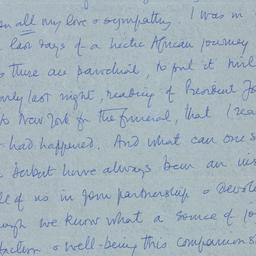 on all my love & sympathy. I was in
last days of a hectic African journey
there are parochial to put it mil
only last night, reading of President Jo
to New York for the funeral, that I rea
had happened. And what can one s
have always been an ins
of us in your partnership & devot
ough we know what a source of jo
faction & well-being this companions